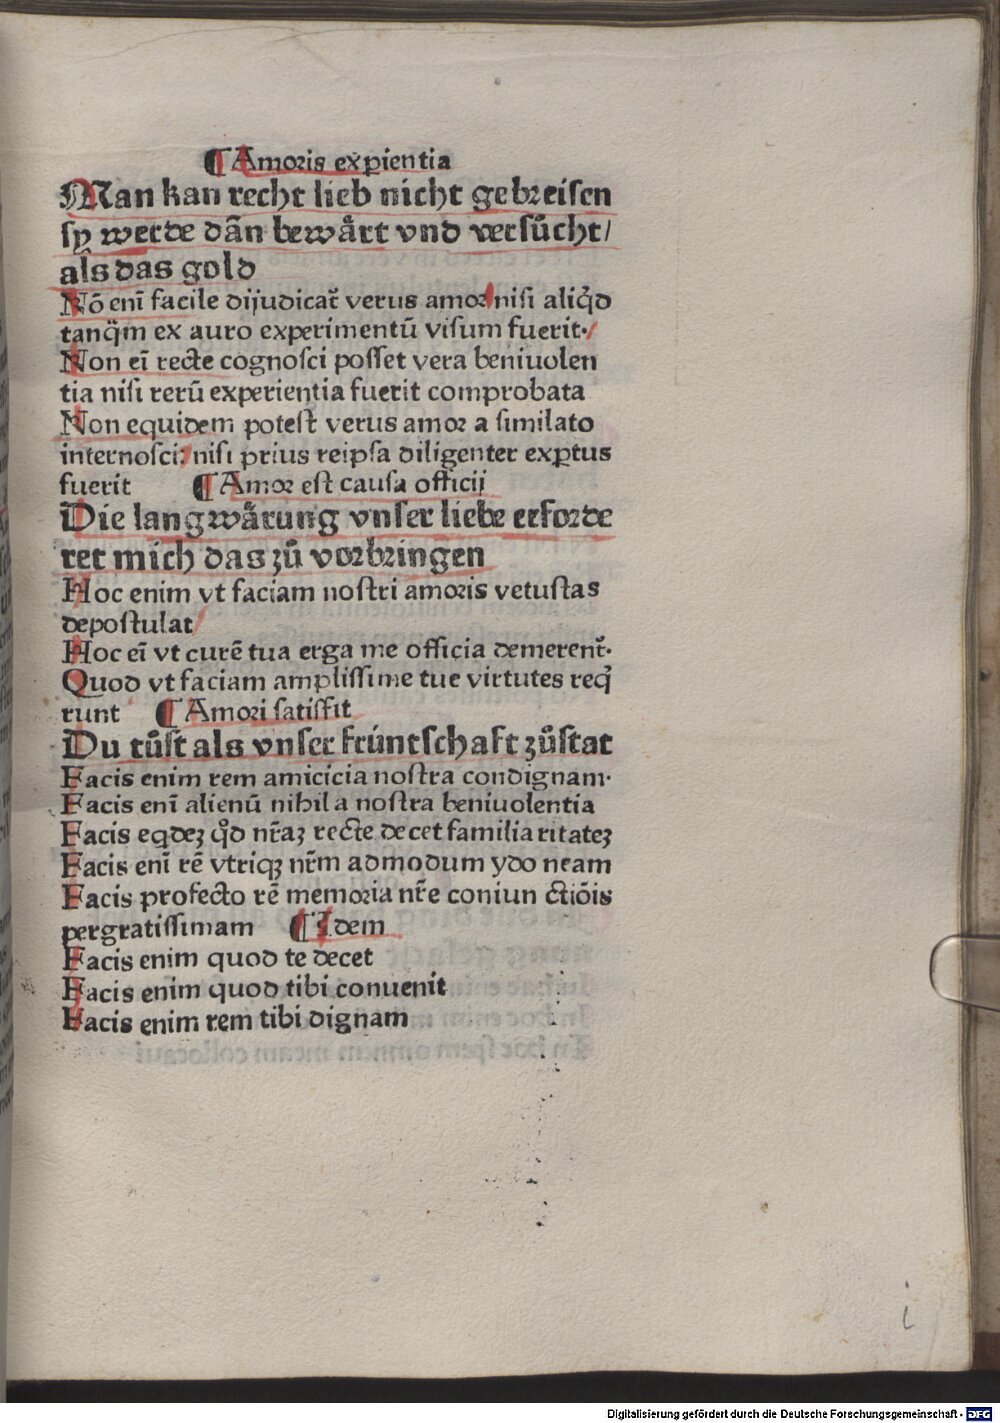 ¶ Amoris exꝑientia
Man kan recht lieb nicht gebreiſen
ſy werde dān bewaͤrt vnd verſuͦcht/
als das gold
Nō enī facile dijudicat᷑ verus amor niſi aliqͥd
tanqͣm ex auro experimentū viſum fuerit·
Non eī recte cognoſci poſſet vera beniuolen
tia niſi rerū experientia fuerit comprobata
Non equidem poteſt verus amor a ſimilato
internoſci: niſi prius reipſa diligenter exꝑtus
fuerit ¶ Amor est cauſa officij
Die lang waͤrung vnſer liebe erforde
ret mich das zuͦ vorbringen
Hoc enim vt faciam noſtri amoris vetuſtas
depoſtulat
Hoc eī vt curē tua erga me officia demerent᷑·
Quod vt faciam ampliſſime tue virtutes req̄
runt ¶ Amori ſatiſfit
Du tuͦſt als vnſer früntſchaft zuͦſtat
Facis enim rem amicicia noſtra condignam·
Facis enī alienū nihil a noſtra beniuolentia
Facis eqdeꝫ qͦd nr̄aꝫ recte decet familia ritateꝫ
Facis enī rē vtriqꝫ nr̄m admodum ydo neam
Facis profecto rē memoria nr̄e coniun ctiōis
pergratiſſimam ¶ Idem
Facis enim quod te decet
Facis enim quod tibi conuenit
Facis enim rem tibi dignam
i
Digitalisierung gefördert durch die Deutsche Forschungsgemeinschaft - DFG